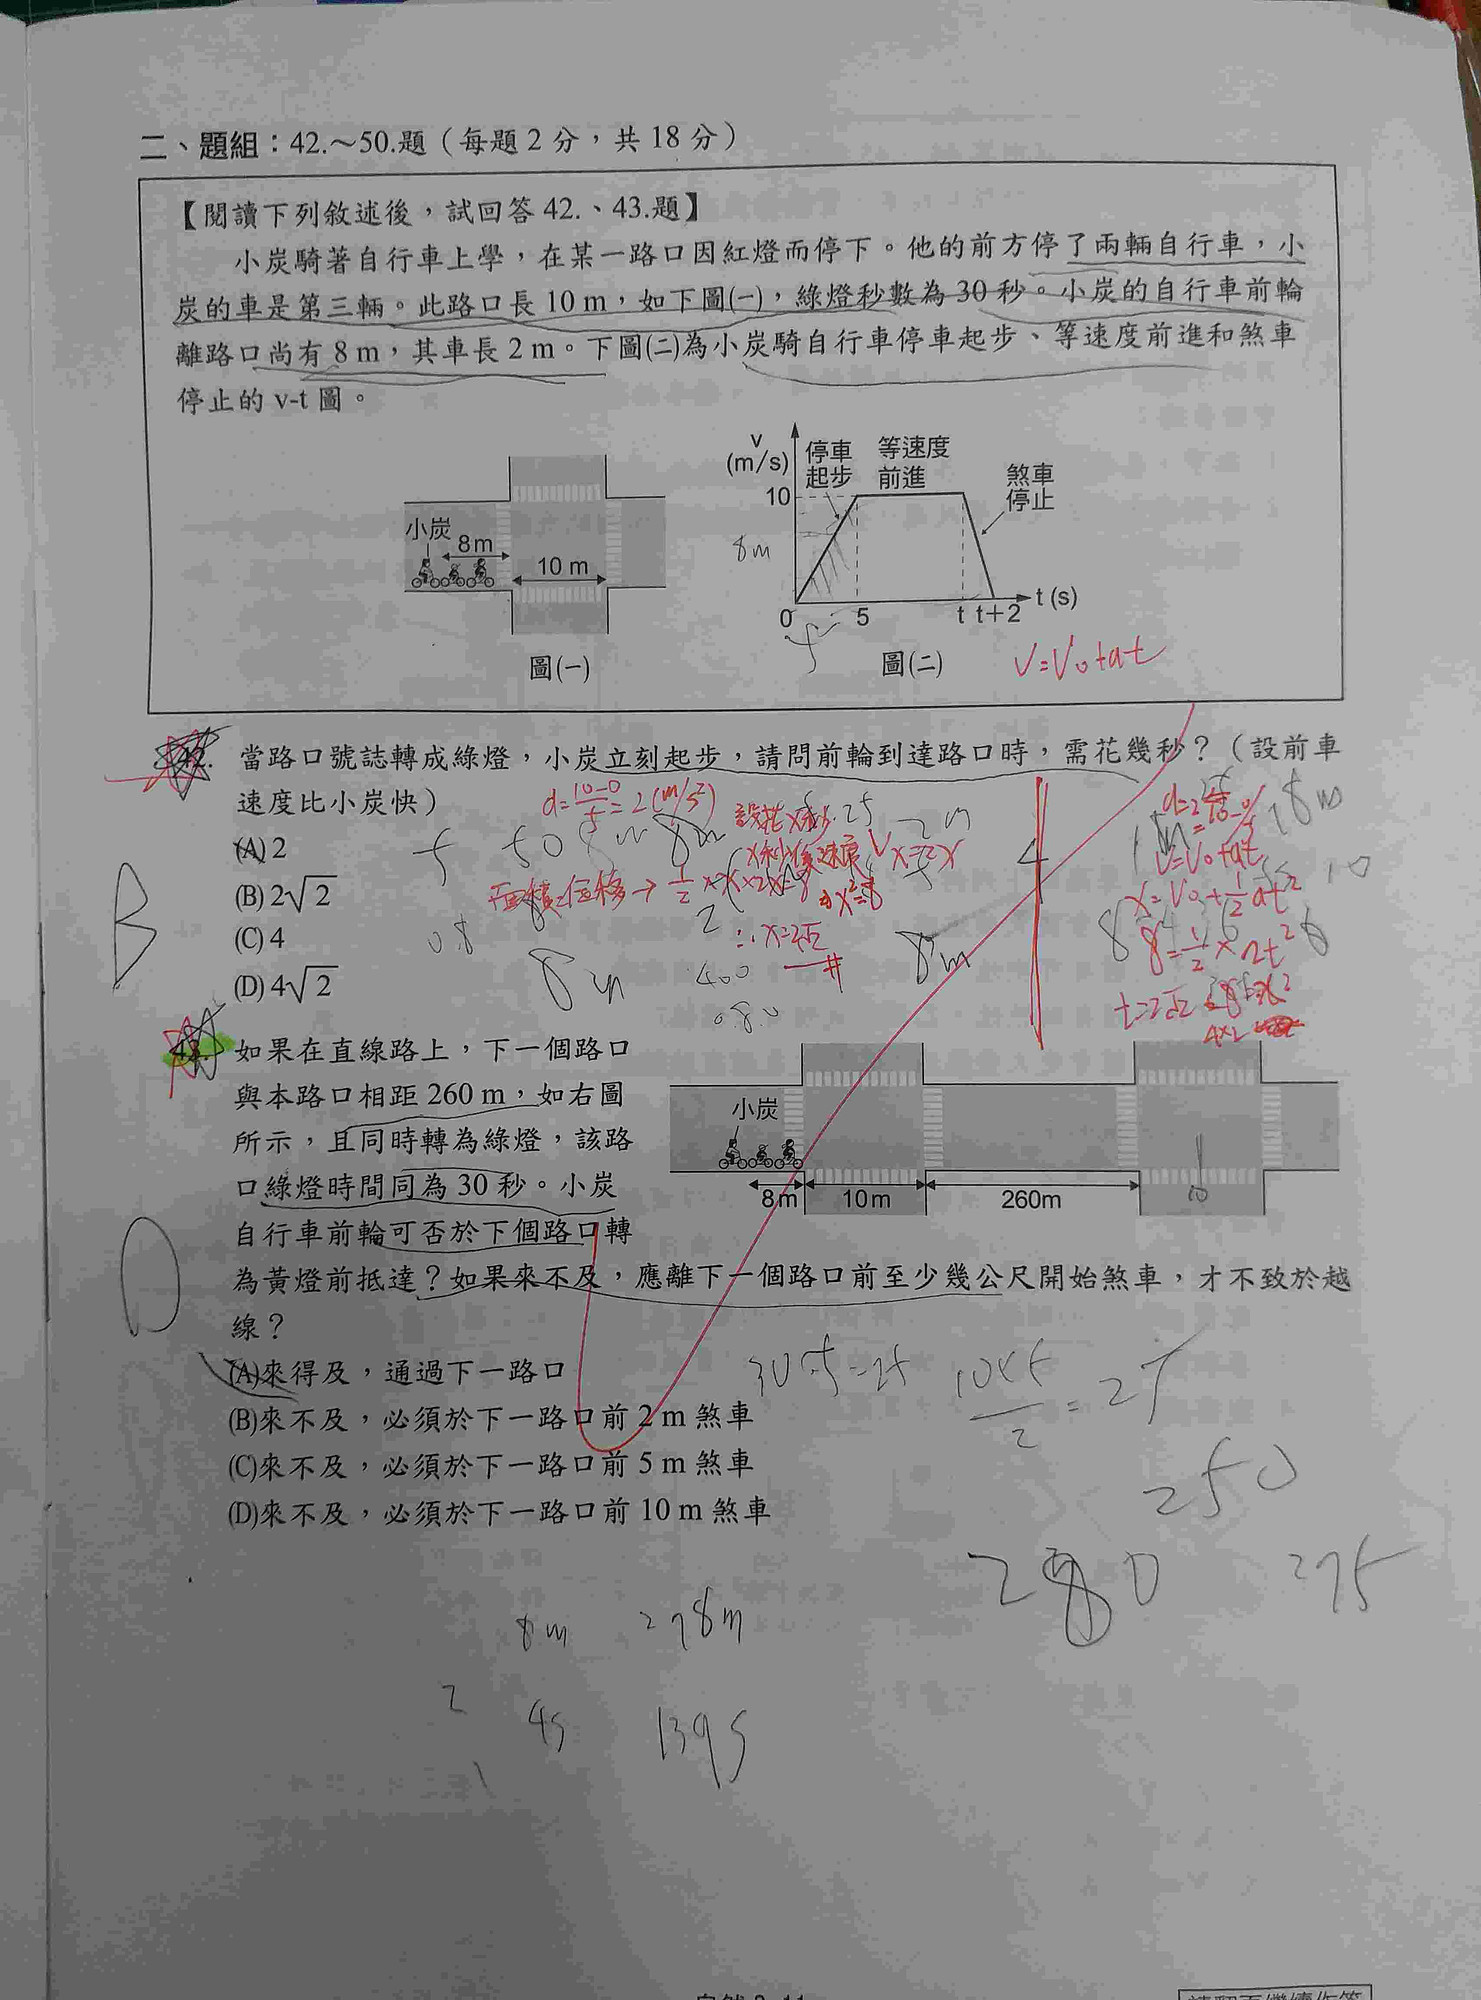 二、題組：42.～50.題（每題2分，共18分）
【閱讀下列敘述後，試回答42.、43.題】
小炭騎著自行車上學，在某一路口因紅燈而停下。他的前方停了兩輛自行車，小
炭的車是第三輛。此路口長10 m，如下圖(一)，綠燈秒數為30秒。小炭的自行車前輪
離路口尚有8 m，其車長2 m。下圖(二)為小炭騎自行車停車起步、等速度前進和煞車
停止的v-t圖。
小炭
8 m
10 m
圖(一)
v
(m/s)
停車
起步
等速度
前進
煞車
停止
10
8m
0
5
t
t+2
t (s)
圖(二)
V=V₀+at
42. 當路口號誌轉成綠燈，小炭立刻起步，請問前輪到達路口時，需花幾秒？（設前車
速度比小炭快）
(A) 2
(B) 2√2
(C) 4
(D) 4√2
B
a=10-0/5=2(m/s²)
面積=位移→
∴x=2√2
V=V₀+at
8=1/2×2t²
t=2√2
8m
43. 如果在直線路上，下一個路口
與本路口相距260 m，如右圖
所示，且同時轉為綠燈，該路
口綠燈時間同為30秒。小炭
自行車前輪可否於下個路口轉
為黃燈前抵達？如果來不及，應離下一個路口前至少幾公尺開始煞車，才不致於越
線？
小炭
8 m
10 m
260m
10
D
(A)來得及，通過下一路口
(B)來不及，必須於下一路口前2 m煞車
(C)來不及，必須於下一路口前5 m煞車
(D)來不及，必須於下一路口前10 m煞車
30-5=25
10×5/2=25
250
280
275
8m
278m
2
4s
139s